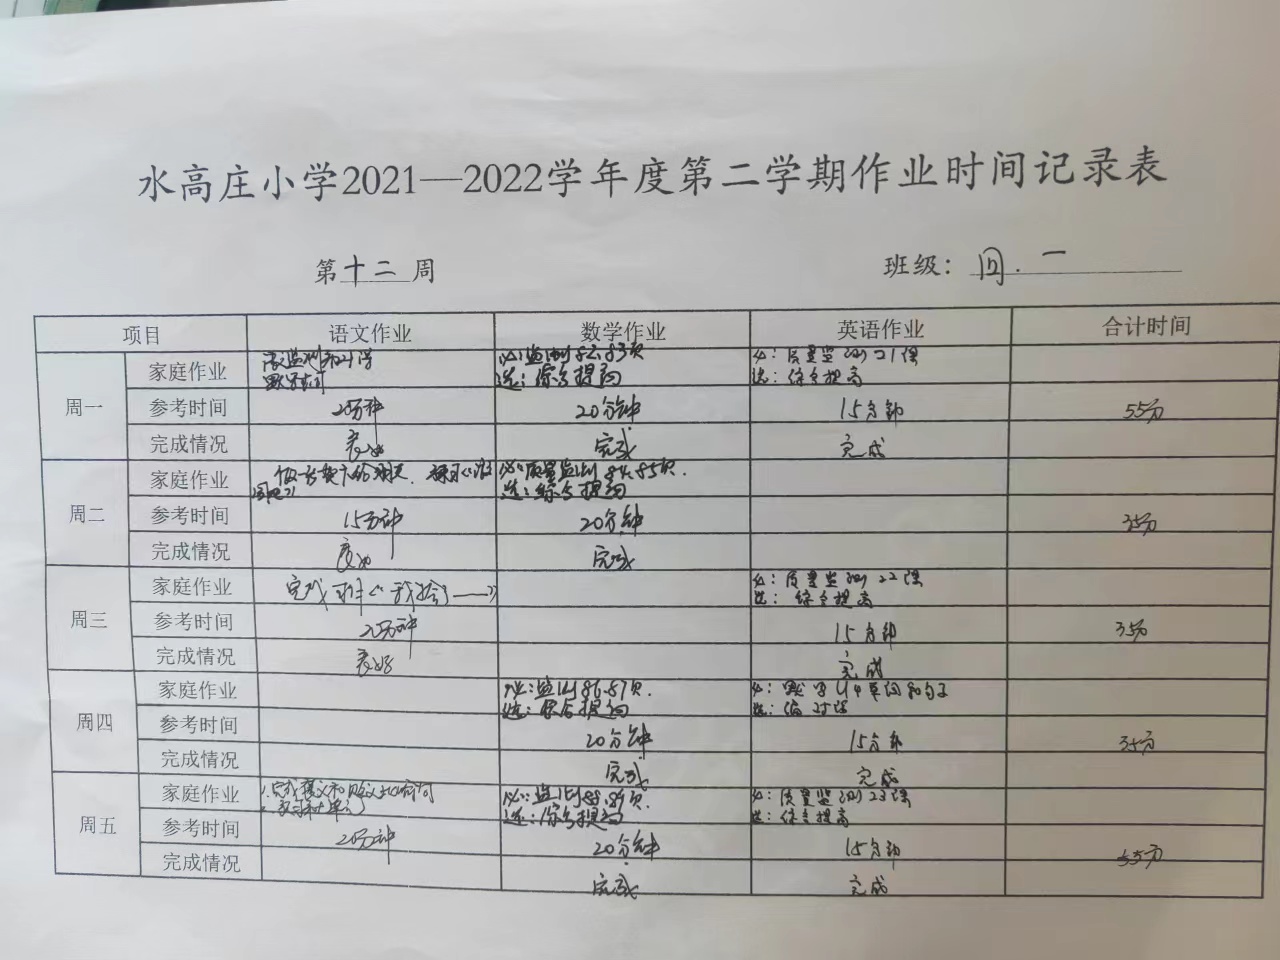 水高庄小学2021—2022学年度第二学期作业时间记录表
第十二周 班级：四.一
项目 语文作业 数学作业 英语作业 合计时间
周一
家庭作业 必：监测82.83页 必：质量监测21课
选：综合提高 选：综合提高
参考时间 20分钟 20分钟 15分钟 55分
完成情况 良好 完成 完成
周二
家庭作业 必：质量监测84.85页.
选：综合提高
参考时间 15分钟 20分钟 35分
完成情况 良好 完成
周三
家庭作业 完成 必：质量监测22课
选：综合提高
参考时间 20分钟 15分钟 35分
完成情况 良好 完成
周四
家庭作业 必：监测86.87页. 必：默写U4单词和句子
选：综合提高 选：
参考时间 20分钟 15分钟 35分
完成情况 完成 完成
周五
家庭作业 必：监测88.89页. 必：质量监测23课
选：综合提高 选：综合提高
参考时间 20分钟 20分钟 15分钟 55分
完成情况 完成 完成